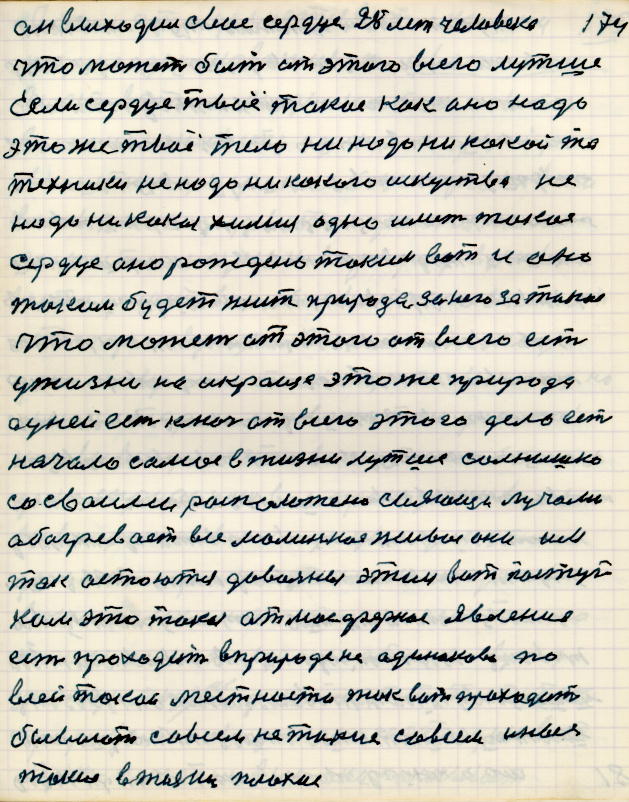 он выходил свое сердце 28 лет человека 174
что может быть от этого всего лутше
Если сердце твоё такое как оно надо
это же твоё тело ни надо ни какой та
техники не надо ни какого искуства не
надо ни какая химия одно имет такое
сердце оно рождено таким вот и оно
таким будет жит природа за него за такое
что может от этого от всего ест
ужизни на икраще это же природа
оуней ест ключ от всего этого дело ест
начало самое в жизни лутше солнышко
со своими расположено сияющи лучами
абагревает все малинкое живое они им
так астоются довольны этим вот поступ
ком это такая атмосферное явления
ест проходит в природе не одинакова по
всей такой местности так вот проходит
бывают совсем не такие совсем иные
такие в жизни плохие